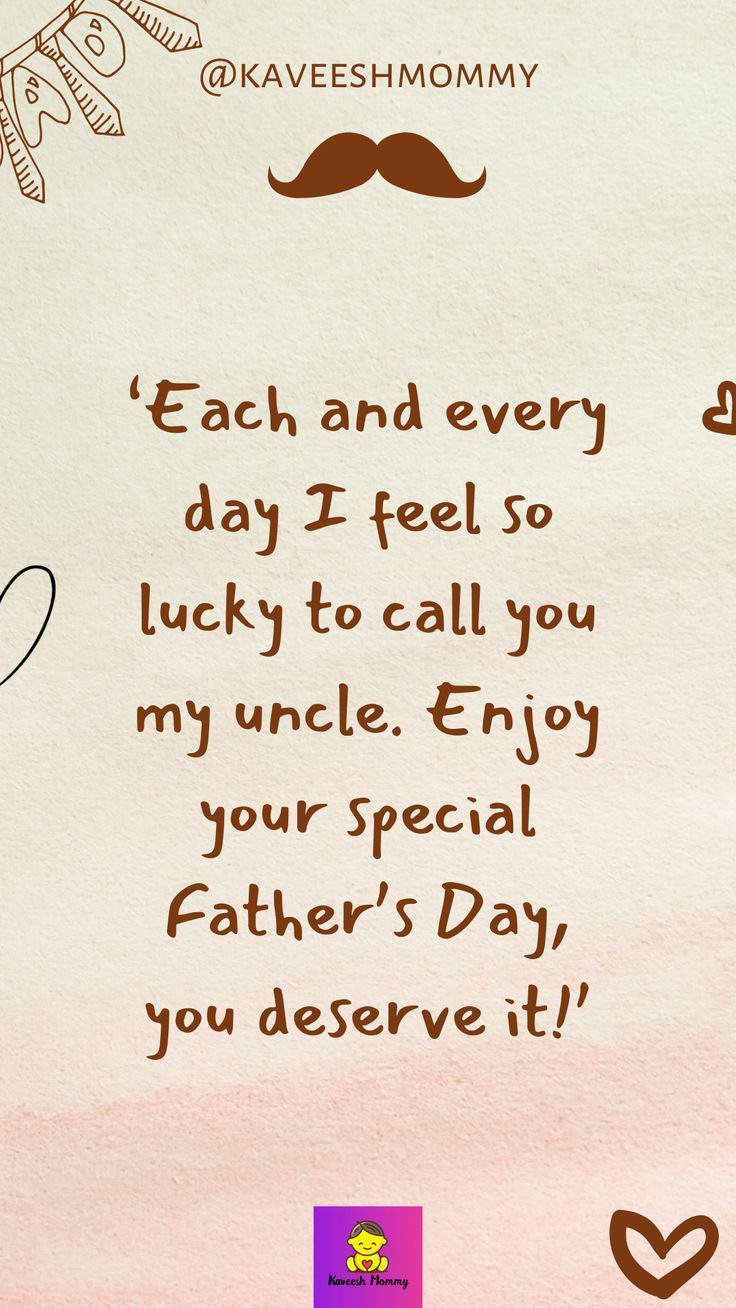 @KAVEESHMOMMY
‘Each and every
day I feel so
lucky to call you
my uncle. Enjoy
your special
Father's Day,
you deserve it!’
Kaveesh Mommy